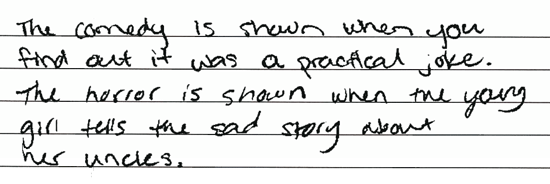 The comedy is shown when you
find out it was a practical joke.
The horror is shown when the young
girl tells the sad story about
her uncles.